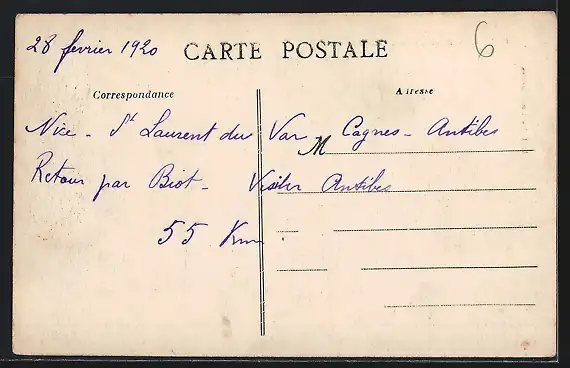 28 février 1920
CARTE POSTALE
6
Correspondance
Adresse
Nice - St Laurent du Var Cagnes - Antibes
M
Retour par Biot - Visiter Antibes
55 Km